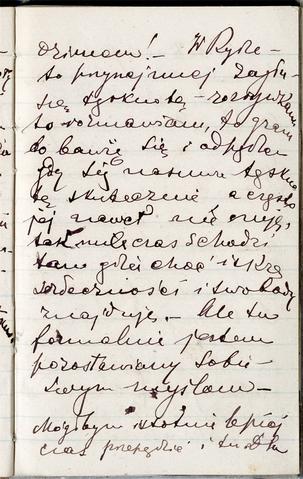 dzinom! – W Rydze
to przynajmniej zajdu
się tęsknotą – rozrywkam
to rozmawiam, to gram
to bawię się i odpędzam
gdy się nasuwa tęskno
tę skutecznie, a często
jej nawet nie czuję,
tak mile czas schodzi
tam gdzie choć iskrę
serdeczności i swobody
znajduję. – Ale tu
formalnie jestem
pozostawiony sobie –
swym myślom –
Mógłbym istotnie lepiej
czas przepędzić i